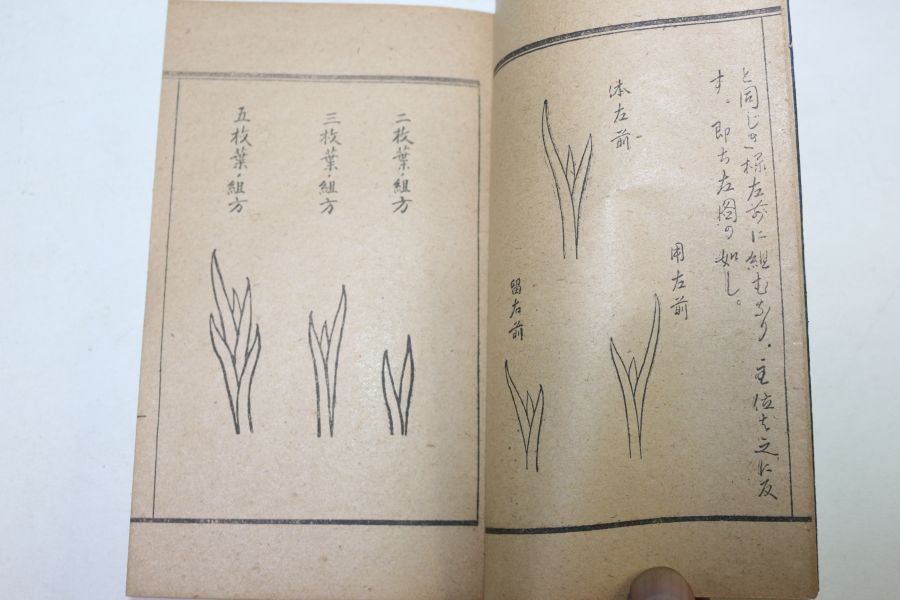 と同じき様左前に組むなり。主位は之に反
す。即ち左図の如し。
体左前
用左前
留右前
二枚葉・組方
三枚葉・組方
五枚葉・組方